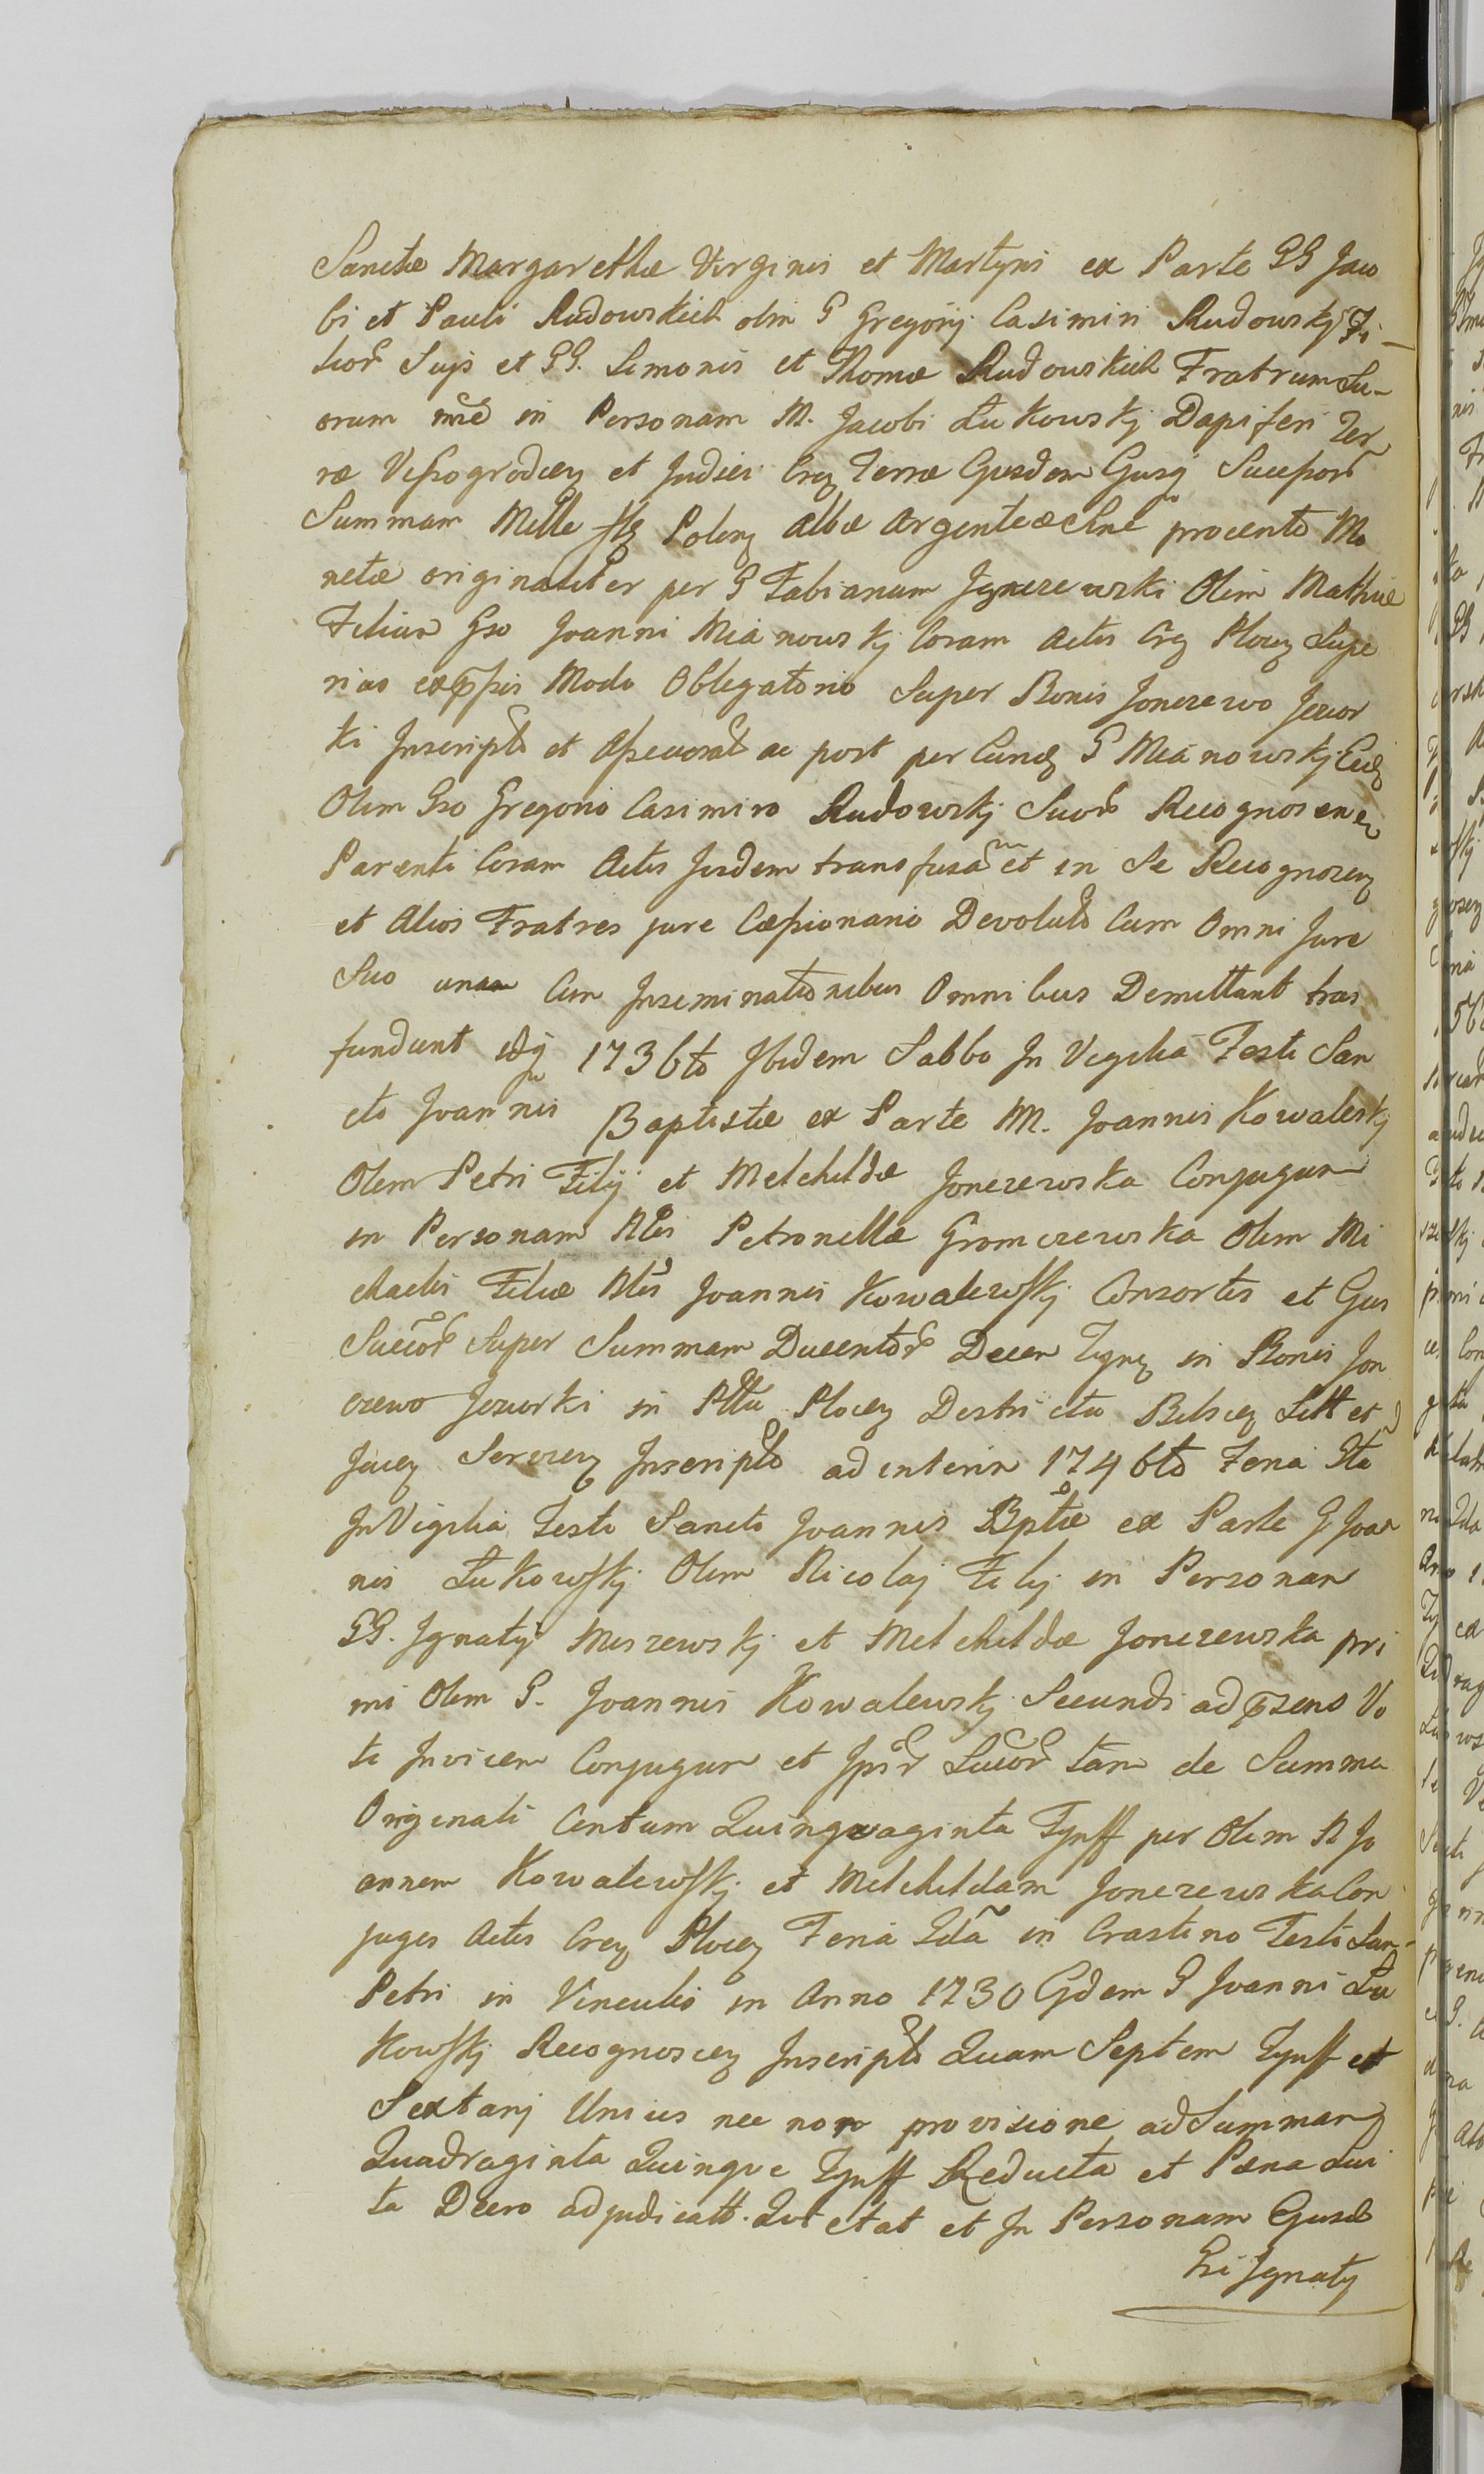 Sanctæ Margarethæ Virginis et Martyris ex Parte GG Jaco
bi et Pauli Rudowskich olim G Gregorij Casimiri Rudowskj Fi-
lior Suis et GG. Simonis et Thomæ Rudowskich Fratrum Su-
orum in Personam M. Jacobi Łukowskj Dapiferi Ter
ræ Vissogrodien et Judicis Terræ Ejusdem Ejusq Successor
Summam Mille Polon Albæ Argenteæ Sine procento Mo
netæ originaliter per G Fabianum Jonczewski Olim Mathiæ
Filium Gso Joanni Mianowskj Coram Actis Plocen Supe
rius Modo Obligatorio Super Bonis Jonczewo Jezior
ki Inscript et Assecurat ac post per Eund G Mianowskj
Olim Gso Gregorio Casimiro Rudowskj Suor Recognoscen
Parenti Coram Actis Jisdem transfusam et in Se Recognoscen
et Alios Fratres jure Cæssionario Devolut Cum Omni Jure
Suo unaa Cum Inseminationibus Omnibus Demittunt trans
fundunt 1736to Ibidem Sabbo In Vigilia Festi San
cto Joannis Baptistæ ex Parte M. Joannis Kowalesky
Olim Petri Filij et Melchildæ Jonczewska Conjugum
in Personam Petronillæ Gromczewska Olim Mi
chaelis Filiæ Joannis Kowalewskj Consortis et Ejus
Succor Super Summam Ducentor Decem Tynf in Bonis Jon
czewo Jeziorki in Plttu Plocen Districtu Bilscen Sitt et
Jacen Inscript ad interim 1746to Feria
In Vigilia Festi Sancti Joannis Bptæ ex Parte G Joan
nis Łukowskj Olim Nicolaj Filij in Personam
GG. Ignatij Miszewskj et Melchildæ Jonczewska pri
mi Olim G. Joannis Kowalewskj Secundi ad Vo
ti Invicem Conjugum et Ipsor Succor tam de Summa
Originali Centum Quinqvaginta Tynff per Olim N Jo
annem Kowalewskj et Melchildam Jonczewska Con
juges Actis Plocen Feria 2da in Crastino Festi San-
Petri in Vinculis in Anno 1730 Eidem G Joanni Łu
kowskj Recognoscen Inscript Quam Septem Tynff et
Sextarij Unius nec non provisione ad Summam
Quadraginta Quinqve Tynff Reducta et Pæna Lui
ta Decro adjudicatt. Quietat et In Personam Ejusd
Gsi Ignatij